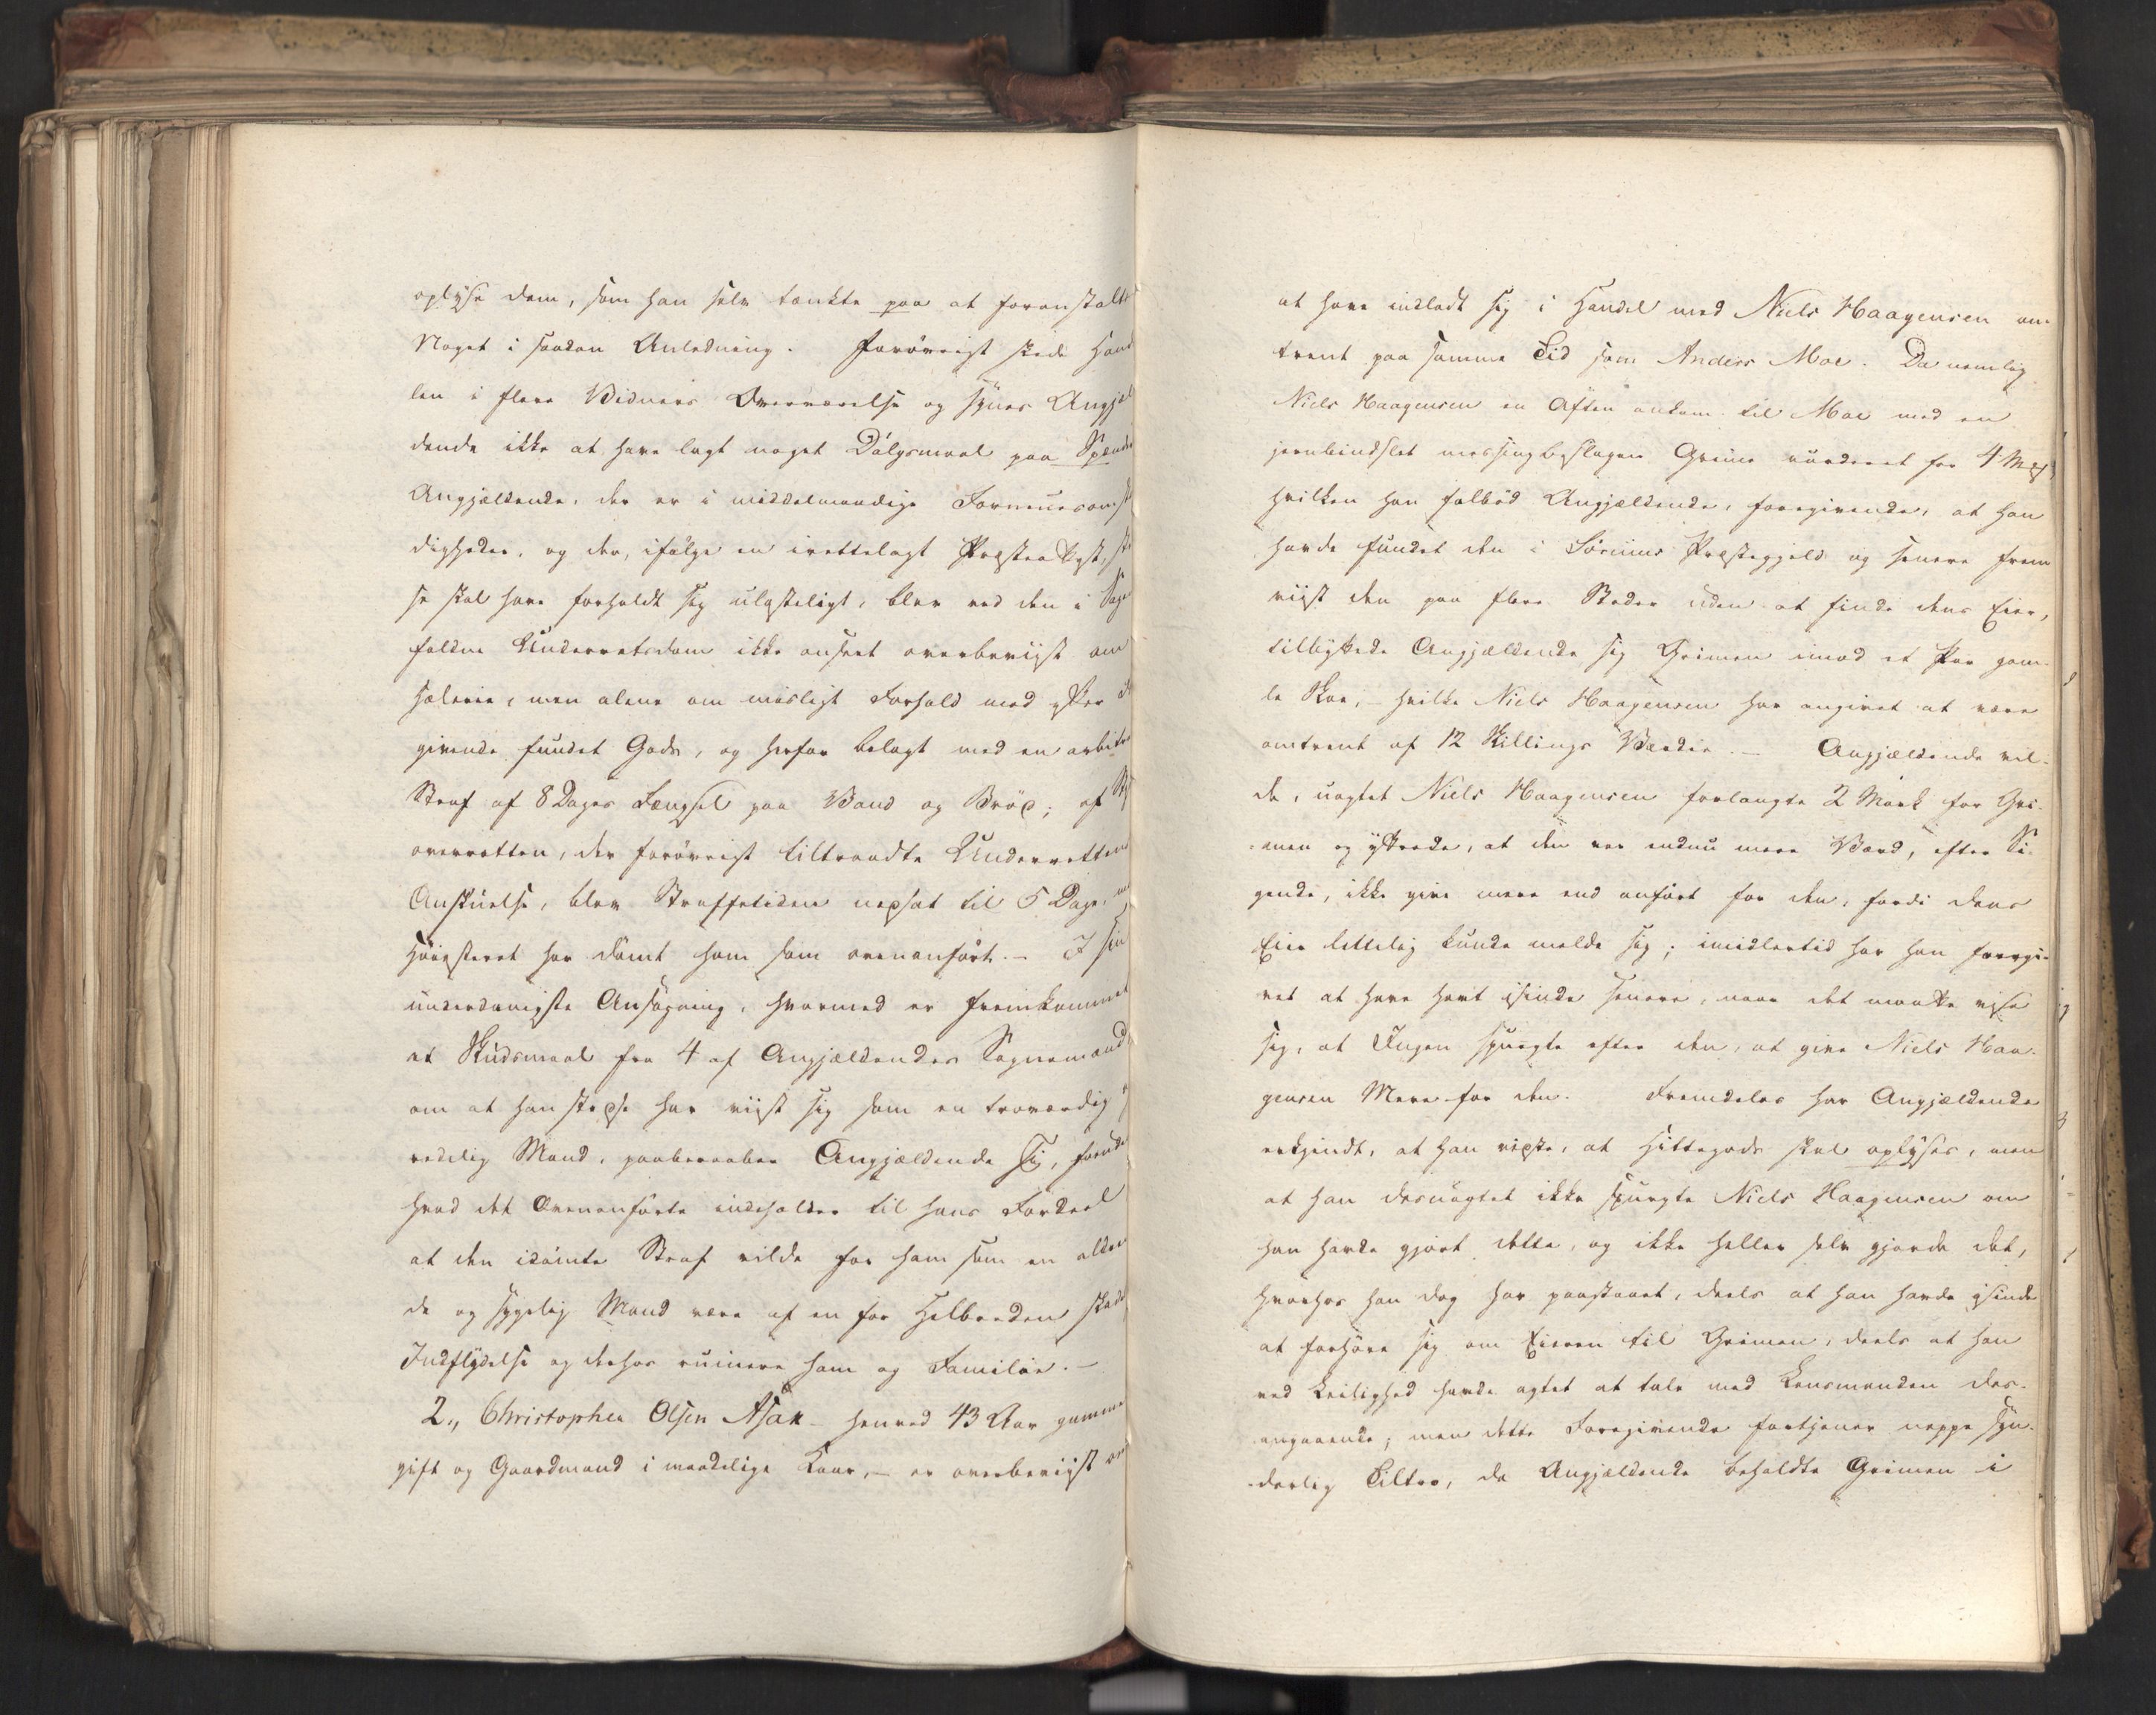 oplyse dem, som han selv tænkte paa at foranstalte
Noget i saadan Anledning. Forøvrigt skede Hand
len i flere Vidners Overværelse og synes Angjæl
dende ikke at have lagt noget Dølgsmaal paa
Angjældende, der er i middelmaadige Formuesom
digheder, og der, ifølge en irettelagt Præsteattest,
se skal have forholdt sig ulasteligt, blev ved den i Sagen
faldne Underretsdom ikke anseet overbeviist om
Hæleri, men alene om misligt Forhold med efter
givende fundet Gods, og herfor belagt med en arbitrær
Straf af 8 Dages Fængsel paa Vand og Brød; af
overretten, der forøvrigt tiltraadte Underrettens
Anskuelse, blev Straffetiden nedsat til 5 Dage,
Høiesteret har dømt ham som ovenanført. – I sin
underdanigste Ansøgning, hvormed er fremkommet
et Skudsmaal fra 4 af Angjældendes Sognemænd
om at han stedse har viist sig som en troværdig
redelig Mand, paaberaaber Angjældende sig, foruden
hvad det Ovenanførte indeholder til hans Fordeel
at den idømte Straf vilde for ham som en alden
de og sygelig Mand være af en for Helbreden skade
Indflydelse og derhos ruinere ham og Familie. –
2., Christopher Olsen Asak – henved 43 Aar gammel
gift og Gaardmand i maadelige Kaar, – er overbeviist om
at have indladt sig i Handel med Niels Haagensen om
trent paa samme Tid som Anders Moe. Da nemlig
Niels Haagensen en Aften ankom til Moe med en
jernbindslet messingbeslagen Grime vurderet for 4
hvilken han falbød Angjældende, foregivende, at han
havde fundet den i Sørums Præstegjeld og senere frem
viist den paa flere Steder uden at finde dens Eier,
tilbyttede Angjældende sig Grimen imod et Par gam-
le Skoe, – hvilke Niels Haagensen har angivet at være
omtrent af 12 Skillings Værdie. – Angjældende vil-
de, uagtet Niels Haagensen forlangte 2 Mark for Gri-
men og yttrede, at den var endnu mere Værd, efter Si-
gende, ikke give mere end anført for den, fordi dens
Eier lettelig kunde melde sig; imidlertid har han foregi-
vet at have havt isinde senere, naar det maatte vise
sig, at Ingen spurgte efter den, at give Niels Haa-
gensen Mere for den. Fremdeles har Angjældende
erkjendt, at han vidste, at Hittegods skal oplyses, men
at han desuagtet ikke spurgte Niels Haagensen om
han havde gjort dette, og ikke heller selv gjorde det,
hvorhos han dog har paastaaet, deels at han havde isinde
at forhøre sig om Eieren til Grimen, deels at han
ved Leilighed havde agtet at tale med Lensmanden des-
angaaende; men dette Foregivende fortjener neppe syn-
derlig Tiltro, da Angjældende beholdte Grimen i